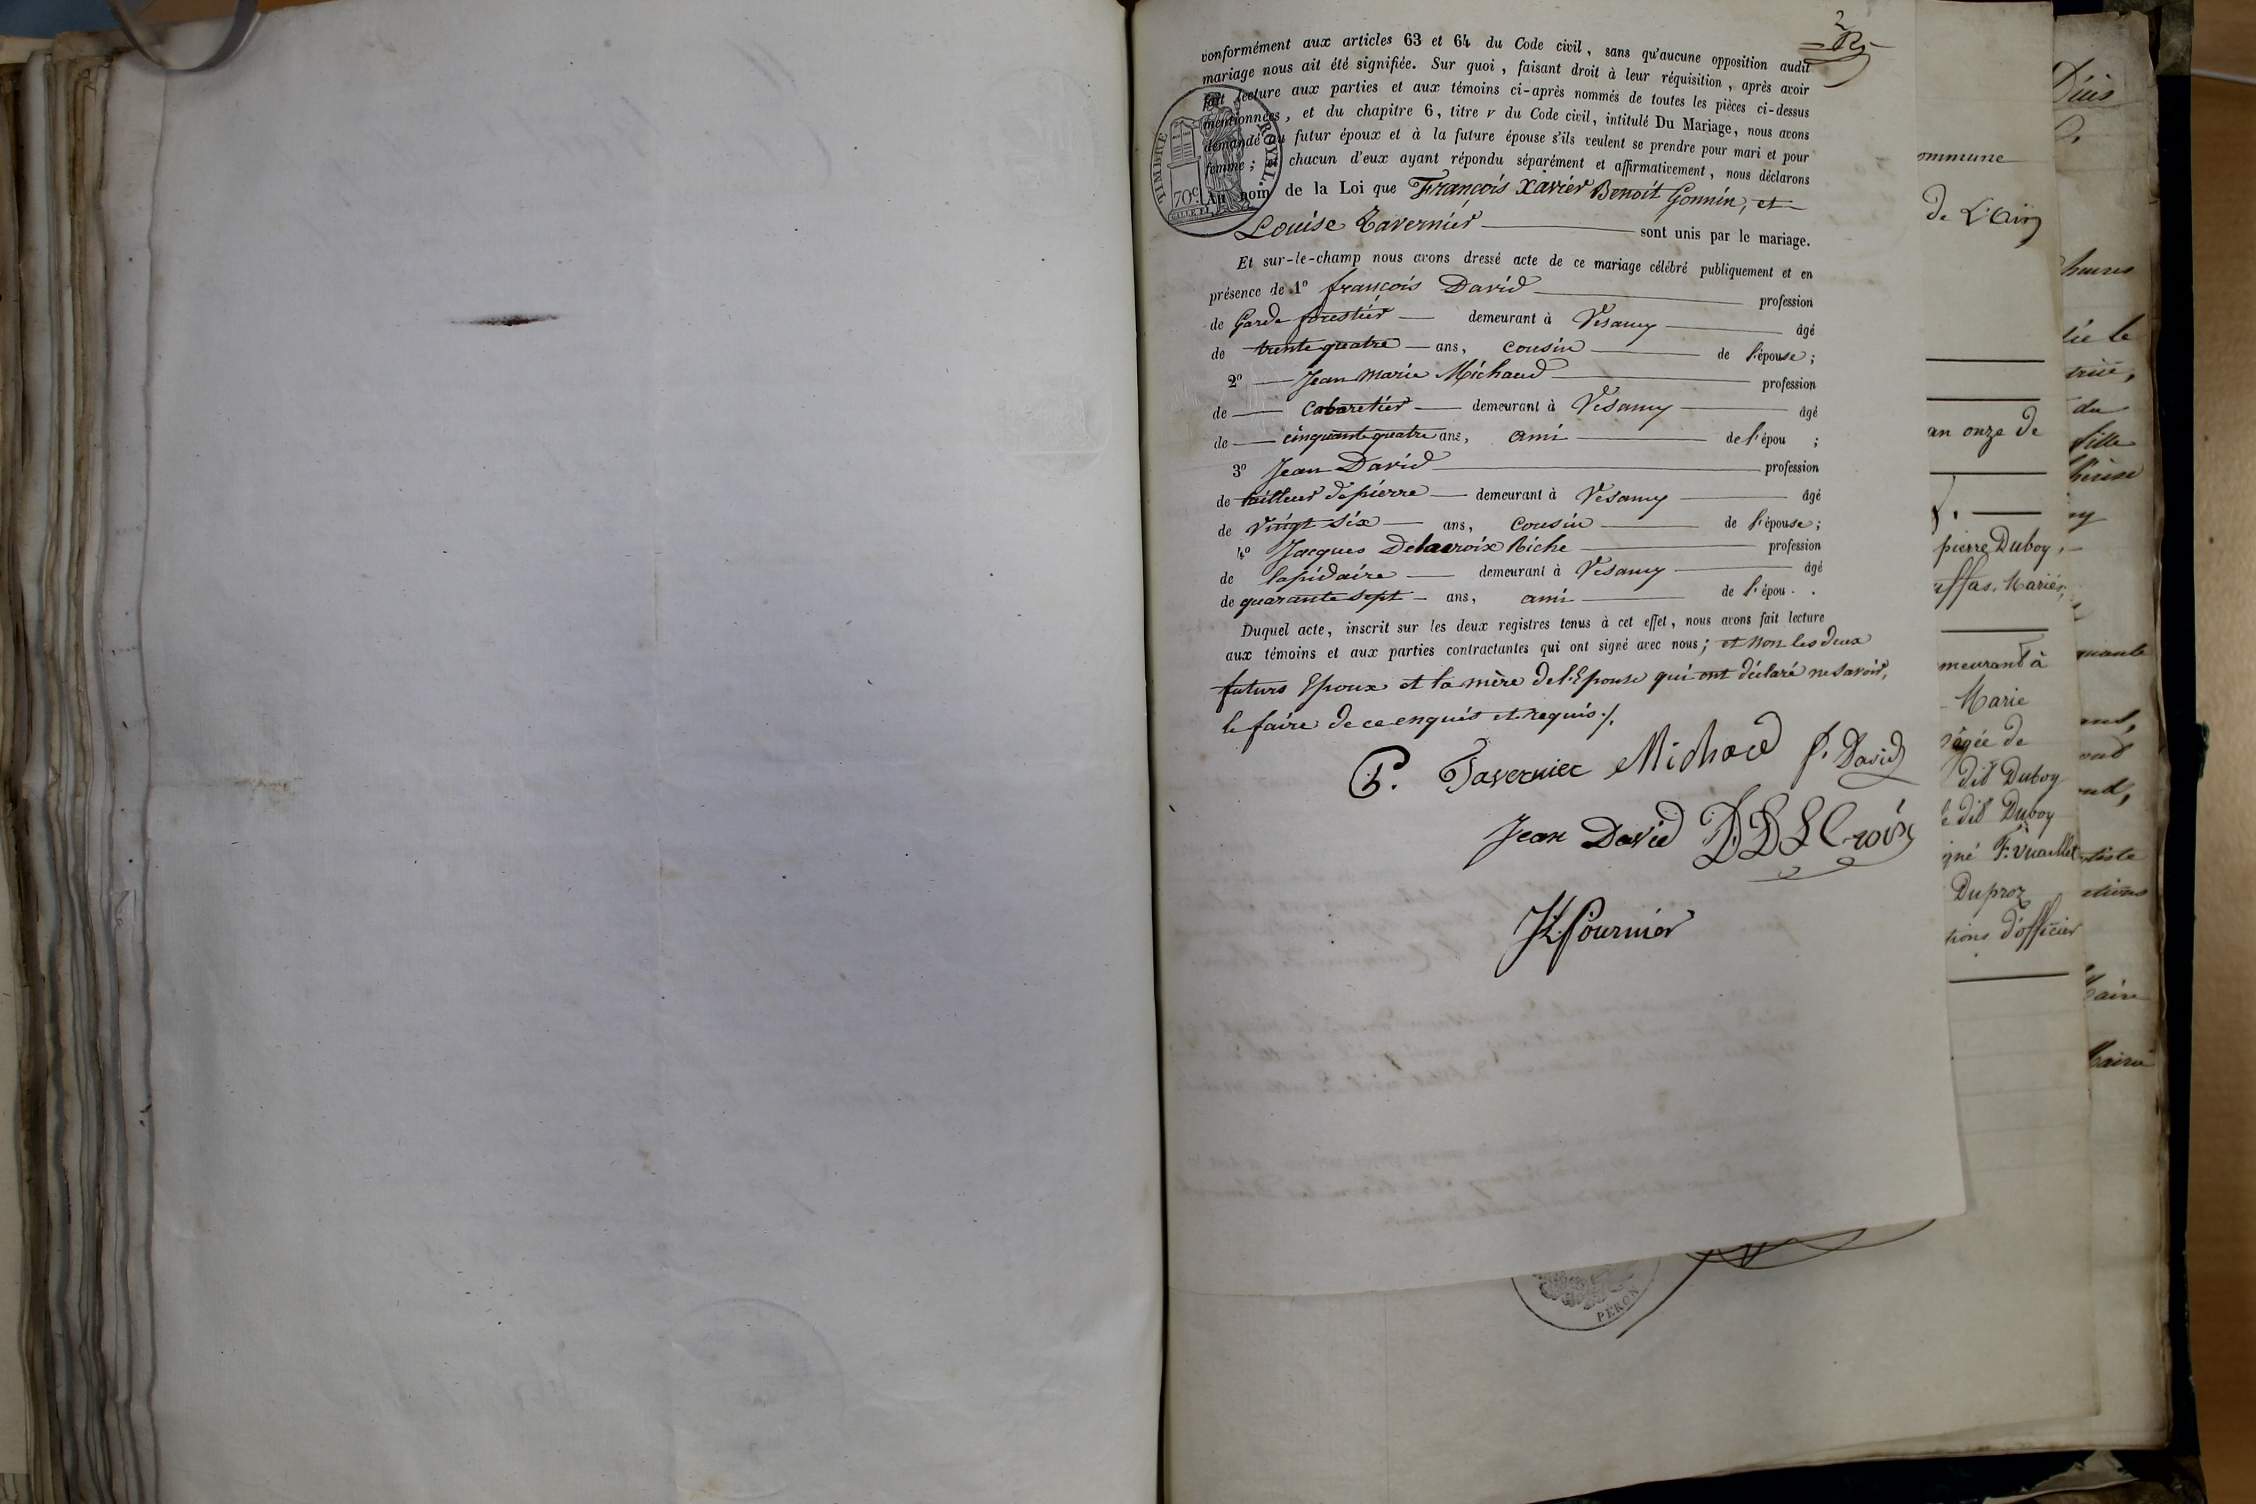 2
conformément aux articles 63 et 64 du Code civil, sans qu'aucune opposition audit
mariage nous ait été signifiée. Sur quoi, faisant droit à leur réquisition, après avoir
fait lecture aux parties et aux témoins ci-après nommés de toutes les pièces ci-dessus
mentionnées, et du chapitre 6, titre v du Code civil, intitulé Du Mariage, nous avons
demandé au futur époux et à la future épouse s'ils veulent se prendre pour mari et pour
femme; chacun d'eux ayant répondu séparément et affirmativement, nous déclarons
Au nom de la Loi que François Xavier Benoit Gonnin, et
Louise Tavernier sont unis par le mariage.
TIMBRE ROYAL.
70c.
Et sur-le-champ nous avons dressé acte de ce mariage célébré publiquement et en
présence de 1º françois David profession
de Garde forestier demeurant à Vesancy âgé
de trente quatre ans, cousin de l'épouse;
2º Jean Marie Michaud profession
de Cabaretier demeurant à Vesancy âgé
de cinquante quatre ans, ami de l'épou ;
3º Jean David profession
de tailleur de pierre demeurant à Vesancy âgé
de vingt six ans, cousin de l'épouse;
4º Jacques Delacroix Riche profession
de lapidaire demeurant à Vesancy âgé
de quarante sept ans, ami de l'épou .
Duquel acte, inscrit sur les deux registres tenus à cet effet, nous avons fait lecture
aux témoins et aux parties contractantes qui ont signé avec nous; et non les deux
futurs Epoux et la mère de l'Epouse qui ont déclaré ne savoir,
le faire de ce enquis et requis ./.
P. Tavernier Michaud f. David
Jean David
JL Fournier
PERON
ommune
de L'Ain
an onze de
pierre Duboy,
uffas, Mariés,
meurant à
Marie
âgée de
dit Duboy
dit Duboy
gné F. Vuaillet
Duproz
tions d'officier
heures
du
fille